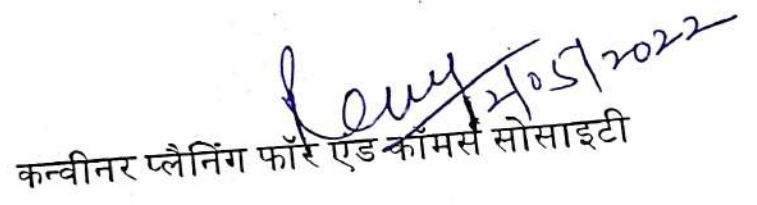 12/05/2022
कन्वीनर प्लैनिंग फॉर एंड कॉमर्स सोसाइटी